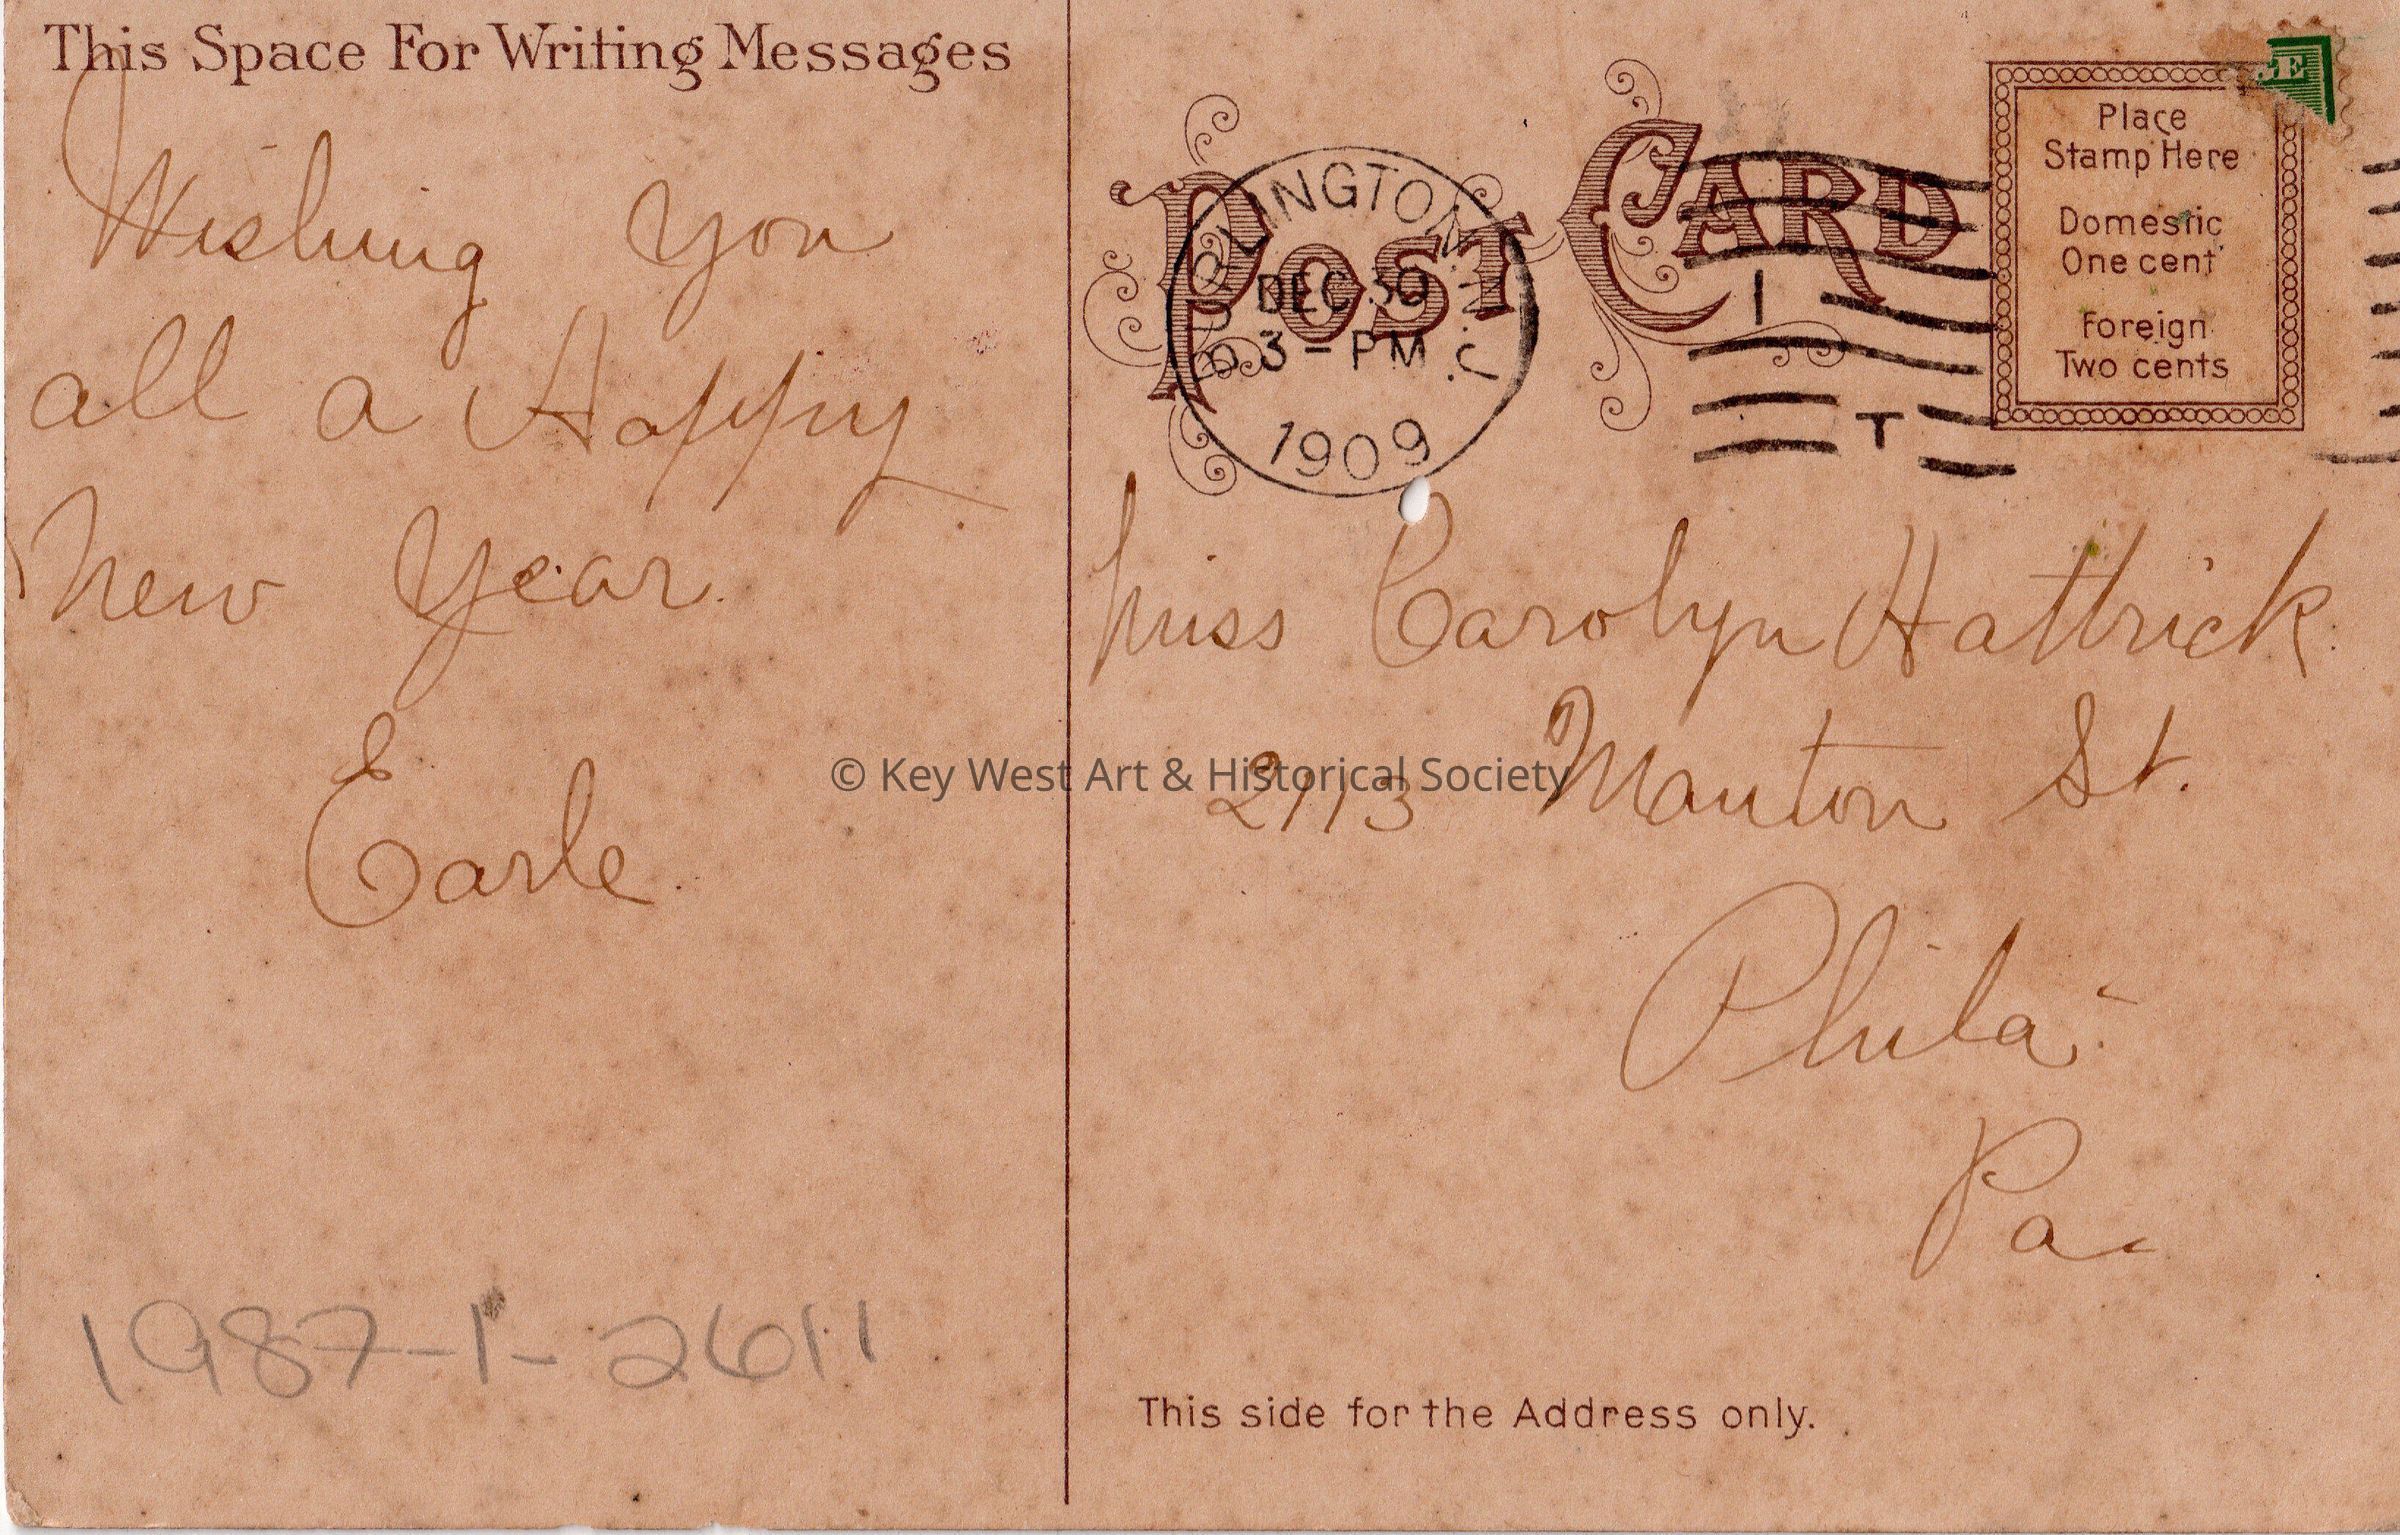 This Space For Writing Messages
Wishing you
all a Happy
New Year.
Earle.
1987-1-2611
POST CARD
BURLINGTON N.J.
DEC 30
3 - PM
1909
1
T
Place
Stamp Here
Domestic
One cent
Foreign
Two cents
Miss Carolyn Hattrick.
2113 Manton St.
Phila.
Pa.
This side for the Address only.
© Key West Art & Historical Society